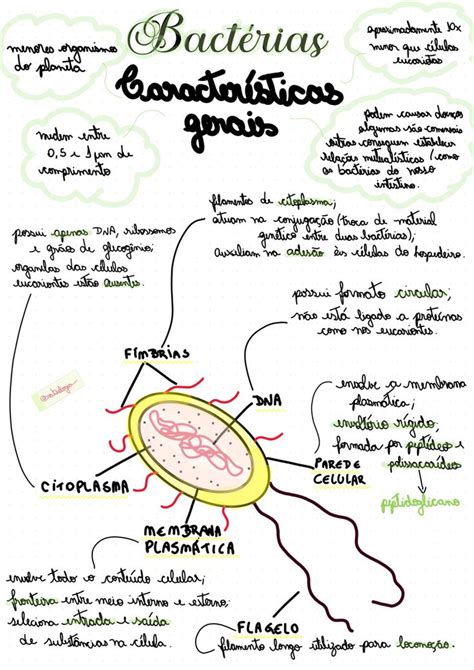 Bactérias
Características
gerais
menores organismos
do planeta
aproximadamente 10x
menor que células
eucariotas
medem entre
0,5 e 1 μm de
comprimento
podem causar doenças
algumas são comensais
outras conseguem estabelecer
relações mutualísticas / como
as bactérias do nosso
intestino.
filamentos de citoplasma;
atuam na conjugação (troca de material
genético entre duas bactérias);
auxiliam na adesão às células do hospedeiro.
possui apenas DNA, ribossomos
e grãos de glicogênio;
organelas das células
eucariontes estão ausentes.
possui formato circular;
não está ligado a proteínas
como nos eucariontes.
FÍMBRIAS
DNA
envolve a membrana
plasmática;
envoltório rígido;
formada por peptídeos e
polissacarídeos
peptidoglicano
PAREDE
CELULAR
CITOPLASMA
MEMBRANA
PLASMÁTICA
envolve todo o conteúdo celular;
fronteira entre meio interno e externo;
seleciona entrada e saída
de substâncias na célula.
FLAGELO
filamento longo utilizado para locomoção.